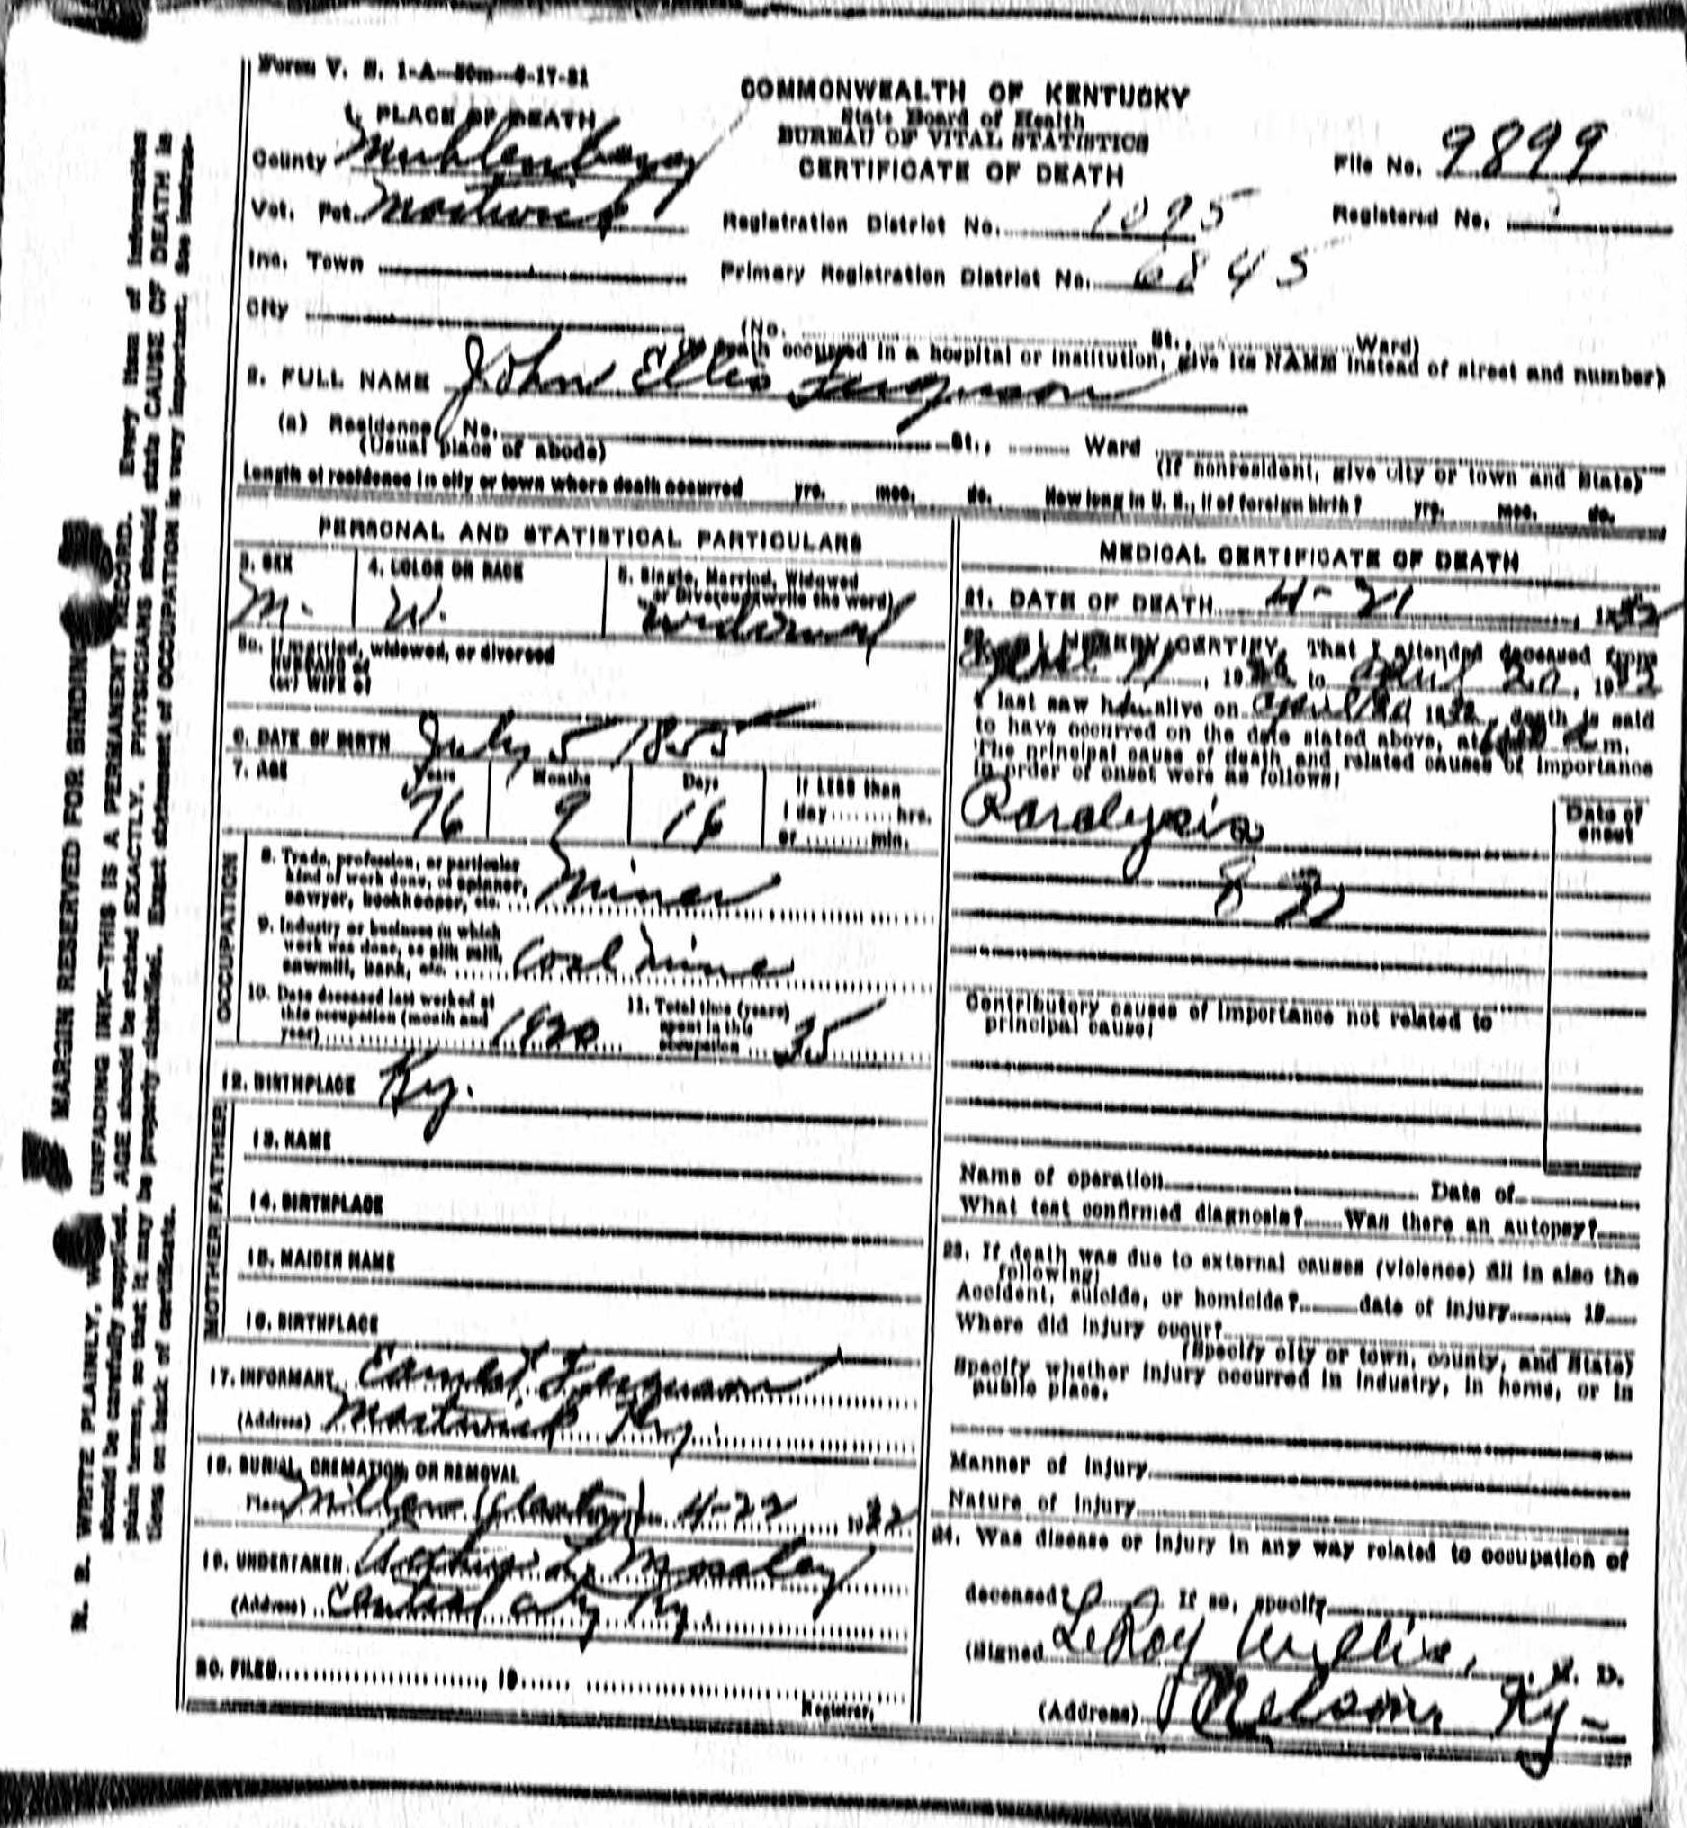 Form V. S. 1-A—50m—8-17-31
COMMONWEALTH OF KENTUCKY
State Board of Health
BUREAU OF VITAL STATISTICS
CERTIFICATE OF DEATH
File No. 9899
Registered No.
1. PLACE OF DEATH
County Muhlenberg
Vot. Pct. Martwick
Registration District No. 1095
Inc. Town
Primary Registration District No. 6845
City (No. St., Ward)
(If death occurred in a hospital or institution, give its NAME instead of street and number)
2. FULL NAME John Ellis Ferguson
(a) Residence No. St., Ward
(Usual place of abode) (If nonresident, give city or town and State)
Length of residence in city or town where death occurred yrs. mos. ds. How long in U. S., if of foreign birth? yrs. mos. ds.
PERSONAL AND STATISTICAL PARTICULARS
3. SEX M.
4. COLOR OR RACE W.
5. Single, Married, Widowed
or Divorced (write the word)
Widowed
5a. If married, widowed, or divorced
HUSBAND of
(or) WIFE of
6. DATE OF BIRTH July 5 1855
7. AGE Years 76 Months 9 Days 16 If LESS than
1 day hrs.
or min.
OCCUPATION
8. Trade, profession, or particular
kind of work done, as spinner,
sawyer, bookkeeper, etc. Miner
9. Industry or business in which
work was done, as silk mill,
sawmill, bank, etc. Coal Mine
10. Date deceased last worked at
this occupation (month and
year) 1920
11. Total time (years)
spent in this
occupation 35
12. BIRTHPLACE Ky.
FATHER
13. NAME
14. BIRTHPLACE
MOTHER
15. MAIDEN NAME
16. BIRTHPLACE
17. INFORMANT Earnest Ferguson
(Address) Martwick Ky.
18. BURIAL, CREMATION, OR REMOVAL
Place 4-22 1932
19. UNDERTAKER Arthur L. Mosley
(Address) Central City Ky.
20. FILED , 19
Registrar.
MEDICAL CERTIFICATE OF DEATH
21. DATE OF DEATH 4-21, 1932
22. I HEREBY CERTIFY, That I attended deceased from
April 11, 1932 to April 20, 1932
I last saw him alive on April 20 1932, death is said
to have occurred on the date stated above, at m.
The principal cause of death and related causes of importance
in order of onset were as follows:
Date of
onset
Paralysis
Contributory causes of importance not related to
principal cause:
Name of operation Date of
What test confirmed diagnosis? Was there an autopsy?
23. If death was due to external causes (violence) fill in also the
following:
Accident, suicide, or homicide? date of injury 19
Where did injury occur?
(Specify city or town, county, and State)
Specify whether injury occurred in industry, in home, or in
public place.
Manner of injury
Nature of injury
24. Was disease or injury in any way related to occupation of
deceased? If so, specify
(Signed LeRoy Willis, M. D.
(Address) Nelson, Ky-
MARGIN RESERVED FOR BINDING
N. B. WRITE PLAINLY, UNFADING INK—THIS IS A PERMANENT RECORD. Every item of information
should be carefully supplied. AGE should be stated EXACTLY. PHYSICIANS should state CAUSE OF DEATH in
plain terms, so that it may be properly classified. Exact statement of OCCUPATION is very important. See instruc-
tions on back of certificate.